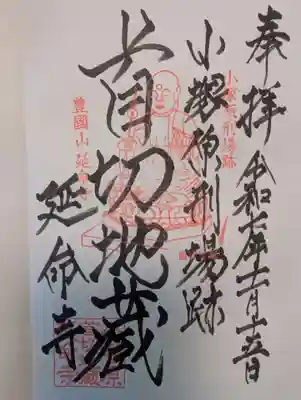 奉拝 令和七年十一月十五日
小塚原刑場跡
小塚原刑場跡
首切地蔵
豊國山延命寺
延命寺